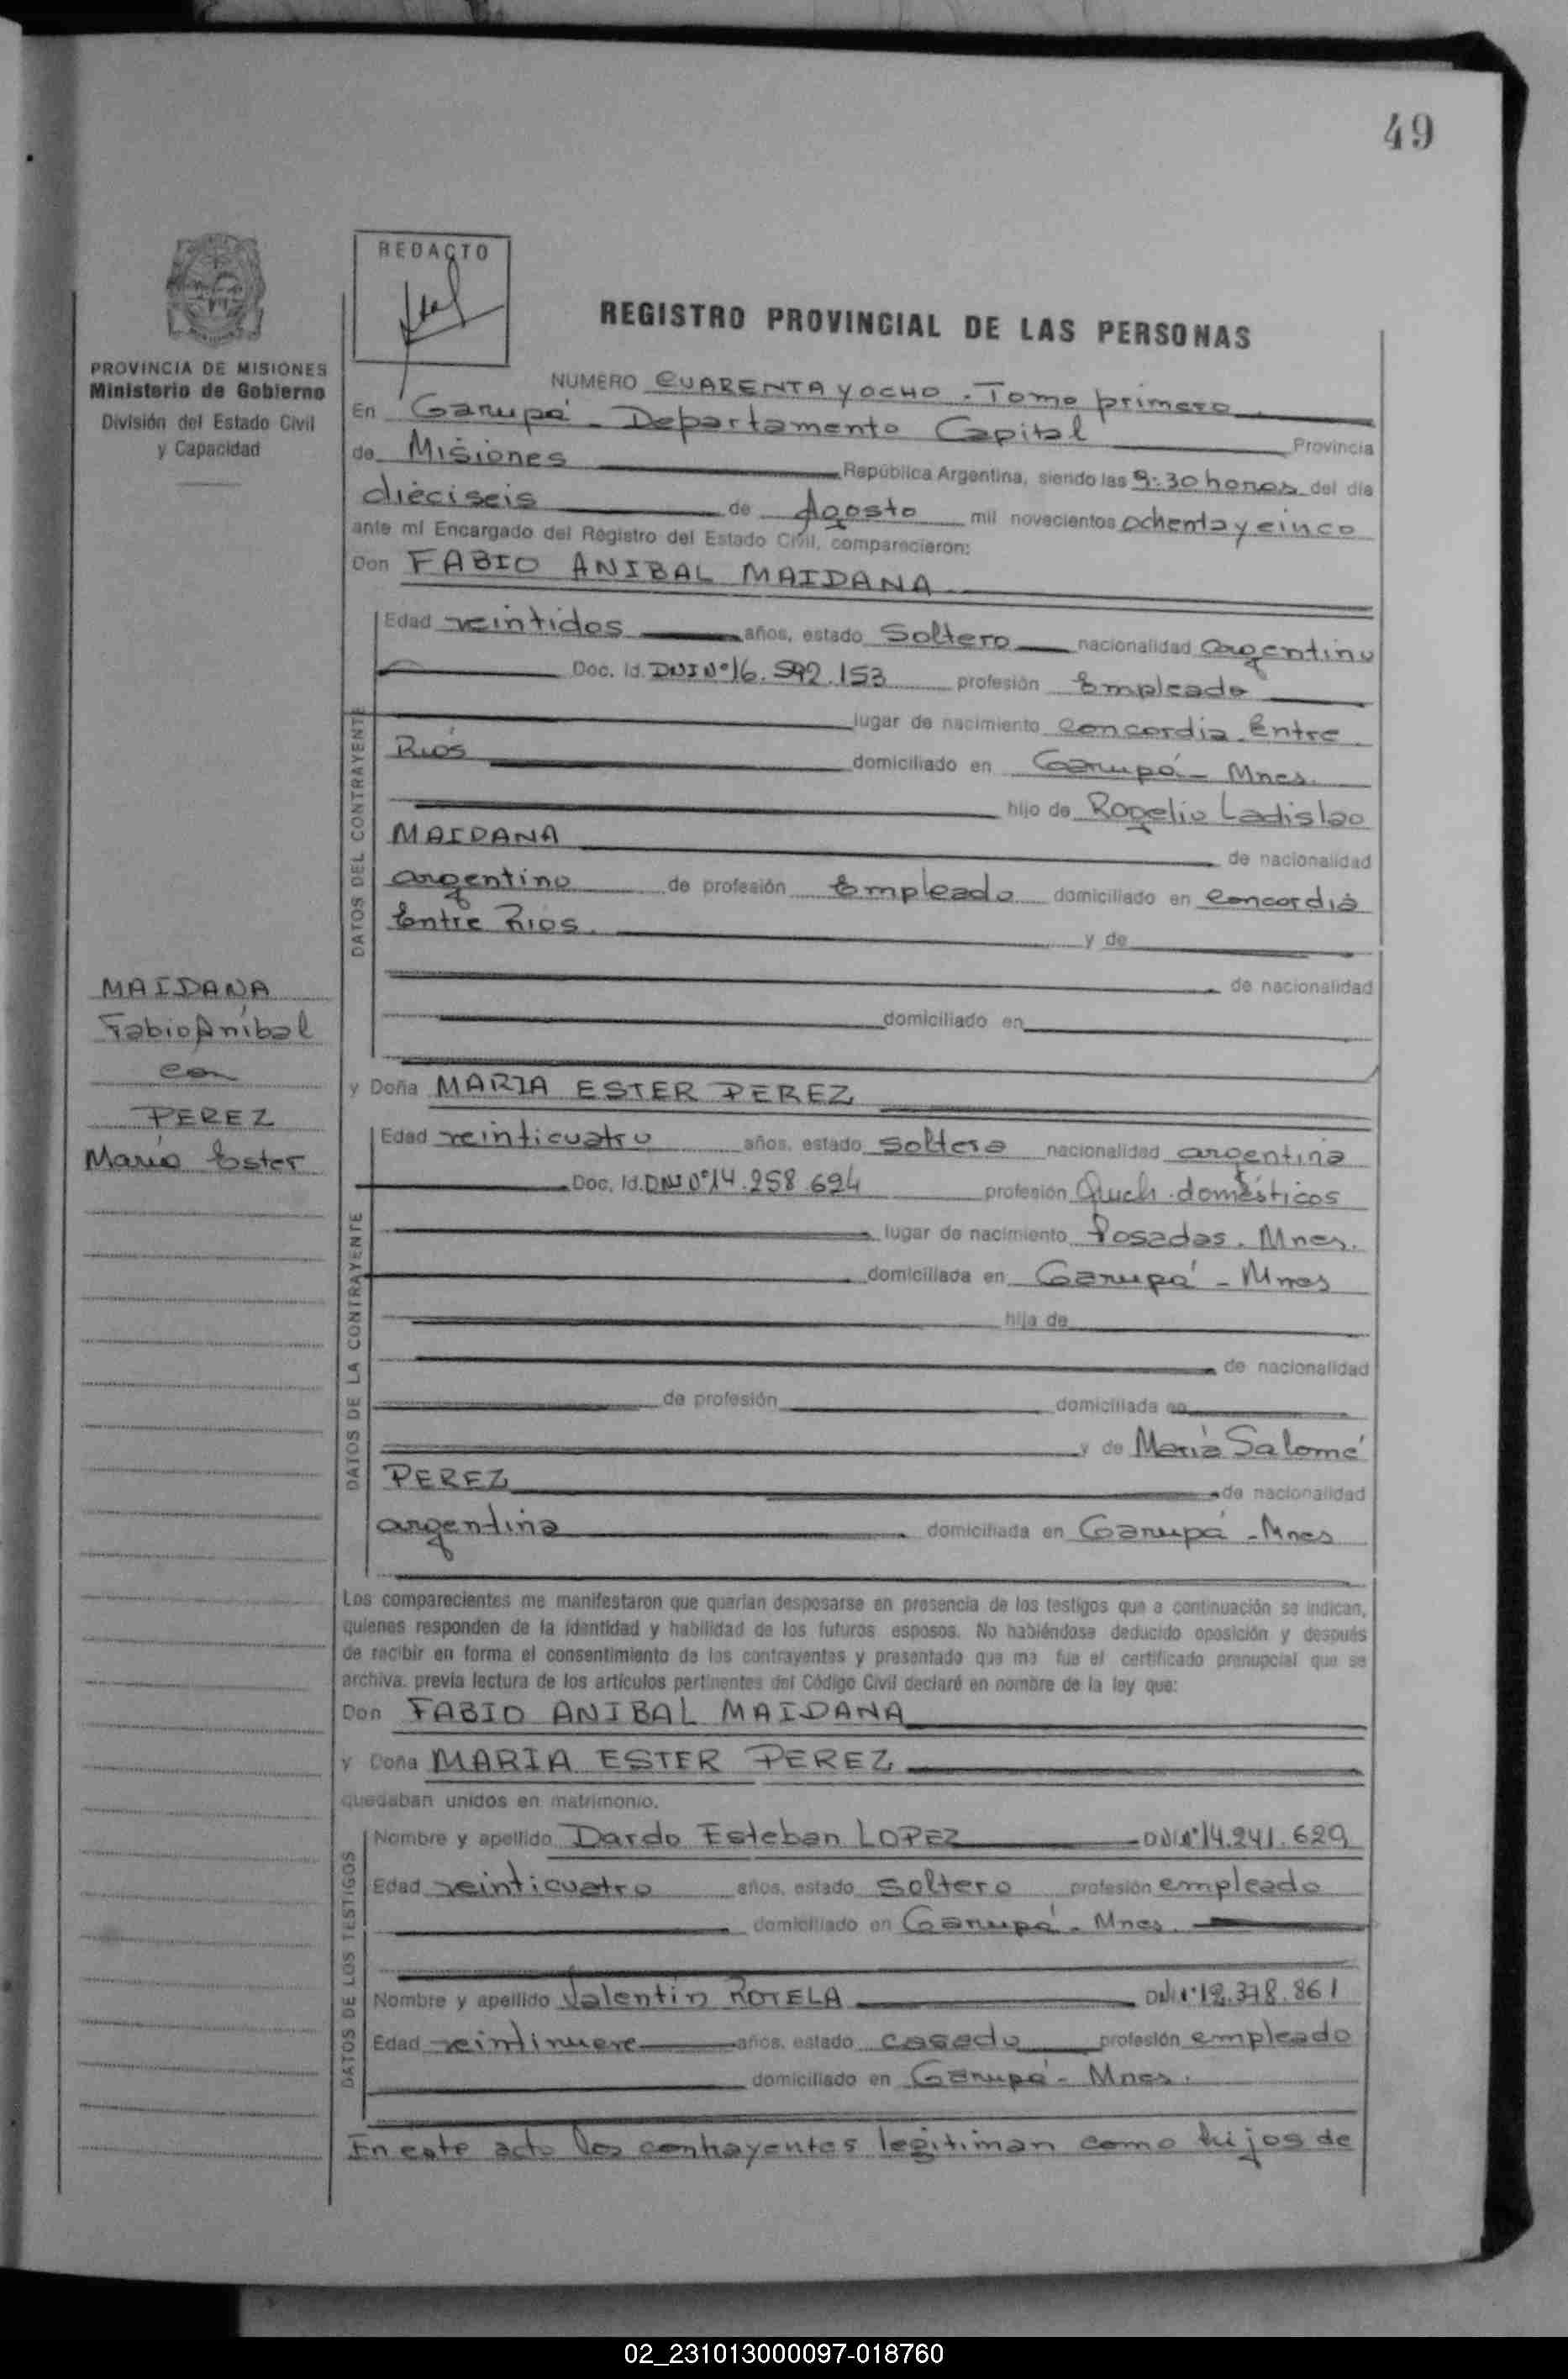 49
REDACTO
REGISTRO PROVINCIAL DE LAS PERSONAS
PROVINCIA DE MISIONES
Ministerio de Gobierno
División del Estado Civil
y Capacidad
NUMERO CUARENTA y OCHO . Tomo primero
En Garupá - Departamento Capital Provincia
de Misiones República Argentina, siendo las 9:30 horas del día
dieciseis de Agosto mil novecientos ochenta y cinco
ante mí Encargado del Registro del Estado Civil, comparecieron:
Don FABIO ANIBAL MAIDANA
DATOS DEL CONTRAYENTE
Edad veintidos años, estado Soltero nacionalidad argentino
Doc. Id. DNI Nº 16.592.153 profesión Empleado
lugar de nacimiento Concordia Entre
Ríos domiciliado en Garupá - Mnes.
hijo de Rogelio Ladislao
MAIDANA de nacionalidad
argentino de profesión Empleado domiciliado en Concordia
Entre Rios. y de
de nacionalidad
domiciliado en
MAIDANA
Fabio Aníbal
con
PEREZ
María Ester
y Doña MARIA ESTER PEREZ
DATOS DE LA CONTRAYENTE
Edad veinticuatro años, estado soltera nacionalidad argentina
Doc. Id. DNI Nº 14.258.694 profesión Queh. domésticos
lugar de nacimiento Posadas. Mnes.
domiciliada en Garupá - Mnes
hija de
de nacionalidad
de profesión domiciliada en
y de María Salomé
PEREZ de nacionalidad
argentina domiciliada en Garupá - Mnes
Los comparecientes me manifestaron que querían desposarse en presencia de los testigos que a continuación se indican,
quienes responden de la identidad y habilidad de los futuros esposos. No habiéndose deducido oposición y después
de recibir en forma el consentimiento de los contrayentes y presentado que me fue el certificado prenupcial que se
archiva. previa lectura de los artículos pertinentes del Código Civil declaré en nombre de la ley que:
Don FABIO ANIBAL MAIDANA
y Doña MARIA ESTER PEREZ
quedaban unidos en matrimonio.
DATOS DE LOS TESTIGOS
Nombre y apellido Dardo Esteban LOPEZ DNI Nº 14.241.629
Edad veinticuatro años, estado soltero profesión empleado
domiciliado en Garupá - Mnes.
Nombre y apellido Valentín ROTELA DNI Nº 12.378.861
Edad veintinueve años, estado casado profesión empleado
domiciliado en Garupá - Mnes.
En este acto los contrayentes legitiman como hijos de
02_231013000097-018760